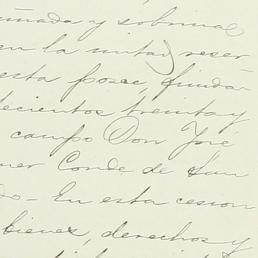 y sobrina
en la mitad reser
esta posee, funda
cientos treinta y
campo Don José
mer Conde de San
do - En esta cesion
bienes, derechos y